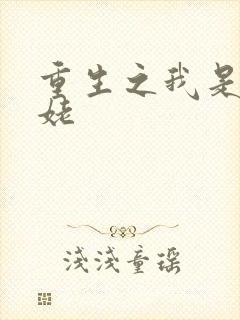 重生之我是
姥
浅浅童瑶